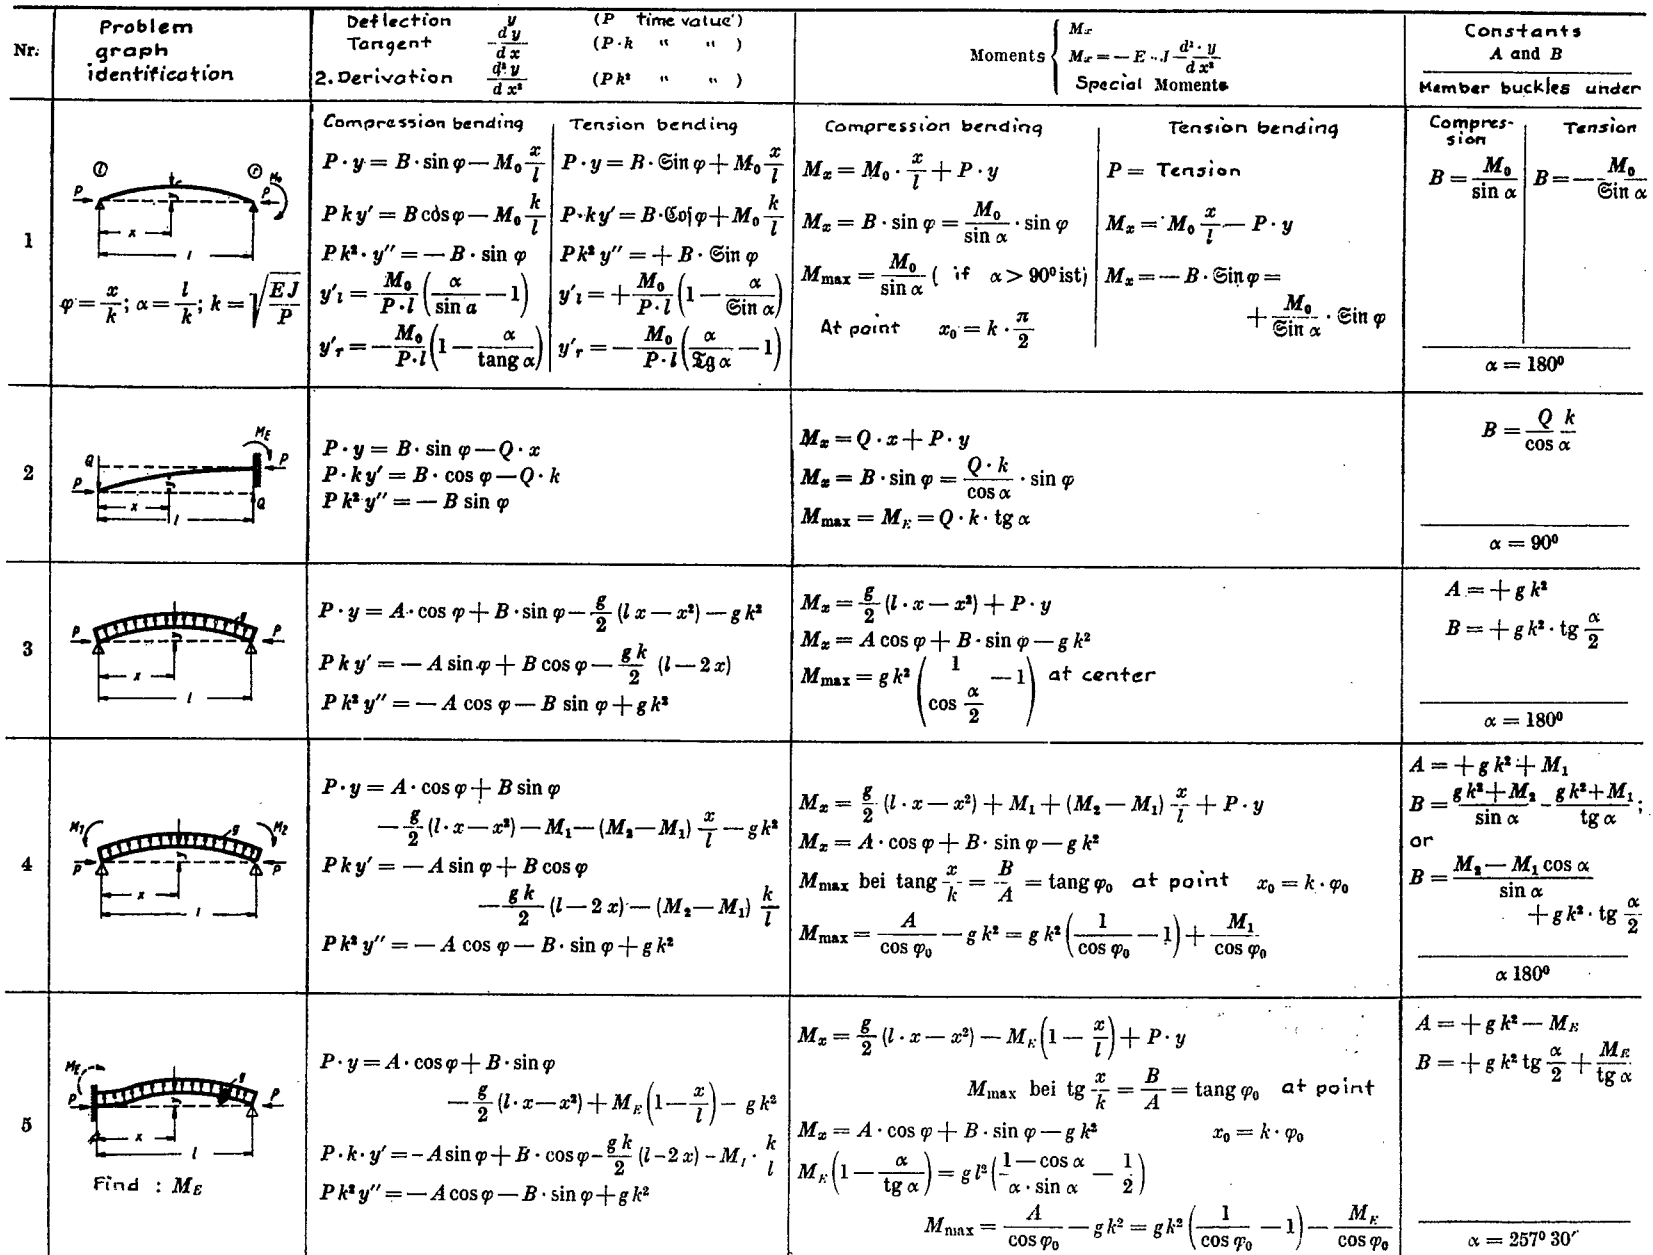 Nr.
Problem
graph
identification
Deflection y (P time value')
Tangent dy/dx (P·k " " )
2. Derivation d²y/dx² (Pk² " " )
Moments { Mx
Mx = — E · J d²·y/dx²
Special Moments
Constants
A and B
Member buckles under
1
① ⓡ M₀
P P
x
l
φ = x/k; α = l/k; k = √(EJ/P)
Compression bending
P · y = B · sin φ — M₀ x/l
P k y′ = B cos φ — M₀ k/l
P k² · y″ = — B · sin φ
y′l = M₀/(P·l) (α/sin a — 1)
y′r = — M₀/(P·l) (1 — α/tang α)
Tension bending
P · y = B · 𝔖in φ + M₀ x/l
P · k y′ = B · ℭoſ φ + M₀ k/l
P k² y″ = + B · 𝔖in φ
y′l = + M₀/(P·l) (1 — α/𝔖in α)
y′r = — M₀/(P·l) (α/𝔗g α — 1)
Compression bending
Mx = M₀ · x/l + P · y
Mx = B · sin φ = M₀/sin α · sin φ
Mmax = M₀/sin α ( if α > 90⁰ ist)
At point x₀ = k · π/2
Tension bending
P = Tension
Mx = M₀ x/l — P · y
Mx = — B · 𝔖in φ =
+ M₀/𝔖in α · 𝔖in φ
Compres-
sion
B = M₀/sin α
Tension
B = — M₀/𝔖in α
α = 180⁰
2
ME
Q P
P Q
x
l
P · y = B · sin φ — Q · x
P · k y′ = B · cos φ — Q · k
P k² y″ = — B sin φ
Mx = Q · x + P · y
Mx = B · sin φ = Q · k/cos α · sin φ
Mmax = ME = Q · k · tg α
B = Q k/cos α
α = 90⁰
3
g
P P
x
l
P · y = A · cos φ + B · sin φ — g/2 (l x — x²) — g k²
P k y′ = — A sin φ + B cos φ — g k/2 (l — 2 x)
P k² y″ = — A cos φ — B sin φ + g k²
Mx = g/2 (l · x — x²) + P · y
Mx = A cos φ + B · sin φ — g k²
Mmax = g k² (1/cos α/2 — 1) at center
A = + g k²
B = + g k² · tg α/2
α = 180⁰
4
M1 g M2
P P
x
l
P · y = A · cos φ + B sin φ
— g/2 (l · x — x²) — M₁ — (M₂ — M₁) x/l — g k²
P k y′ = — A sin φ + B cos φ
— g k/2 (l — 2 x) — (M₂ — M₁) k/l
P k² y″ = — A cos φ — B · sin φ + g k²
Mx = g/2 (l · x — x²) + M₁ + (M₂ — M₁) x/l + P · y
Mx = A · cos φ + B · sin φ — g k²
Mmax bei tang x/k = B/A = tang φ₀ at point x₀ = k · φ₀
Mmax = A/cos φ₀ — g k² = g k² (1/cos φ₀ — 1) + M₁/cos φ₀
A = + g k² + M₁
B = (g k² + M₂)/sin α - (g k² + M₁)/tg α;
or
B = (M₂ — M₁ cos α)/sin α
+ g k² · tg α/2
α 180⁰
5
ME g
P P
x
l
Find : ME
P · y = A · cos φ + B · sin φ
— g/2 (l · x — x²) + ME (1 — x/l) — g k²
P · k · y′ = - A sin φ + B · cos φ - g k/2 (l - 2 x) - Ml · k/l
P k² y″ = — A cos φ — B · sin φ + g k²
Mx = g/2 (l · x — x²) — ME (1 — x/l) + P · y
Mmax bei tg x/k = B/A = tang φ₀ at point
Mx = A · cos φ + B · sin φ — g k² x₀ = k · φ₀
ME (1 — α/tg α) = g l² ((1 — cos α)/(α · sin α) — 1/2)
Mmax = A/cos φ₀ — g k² = g k² (1/cos φ₀ — 1) — ME/cos φ₀
A = + g k² — ME
B = + g k² tg α/2 + ME/tg α
α = 257⁰ 30′